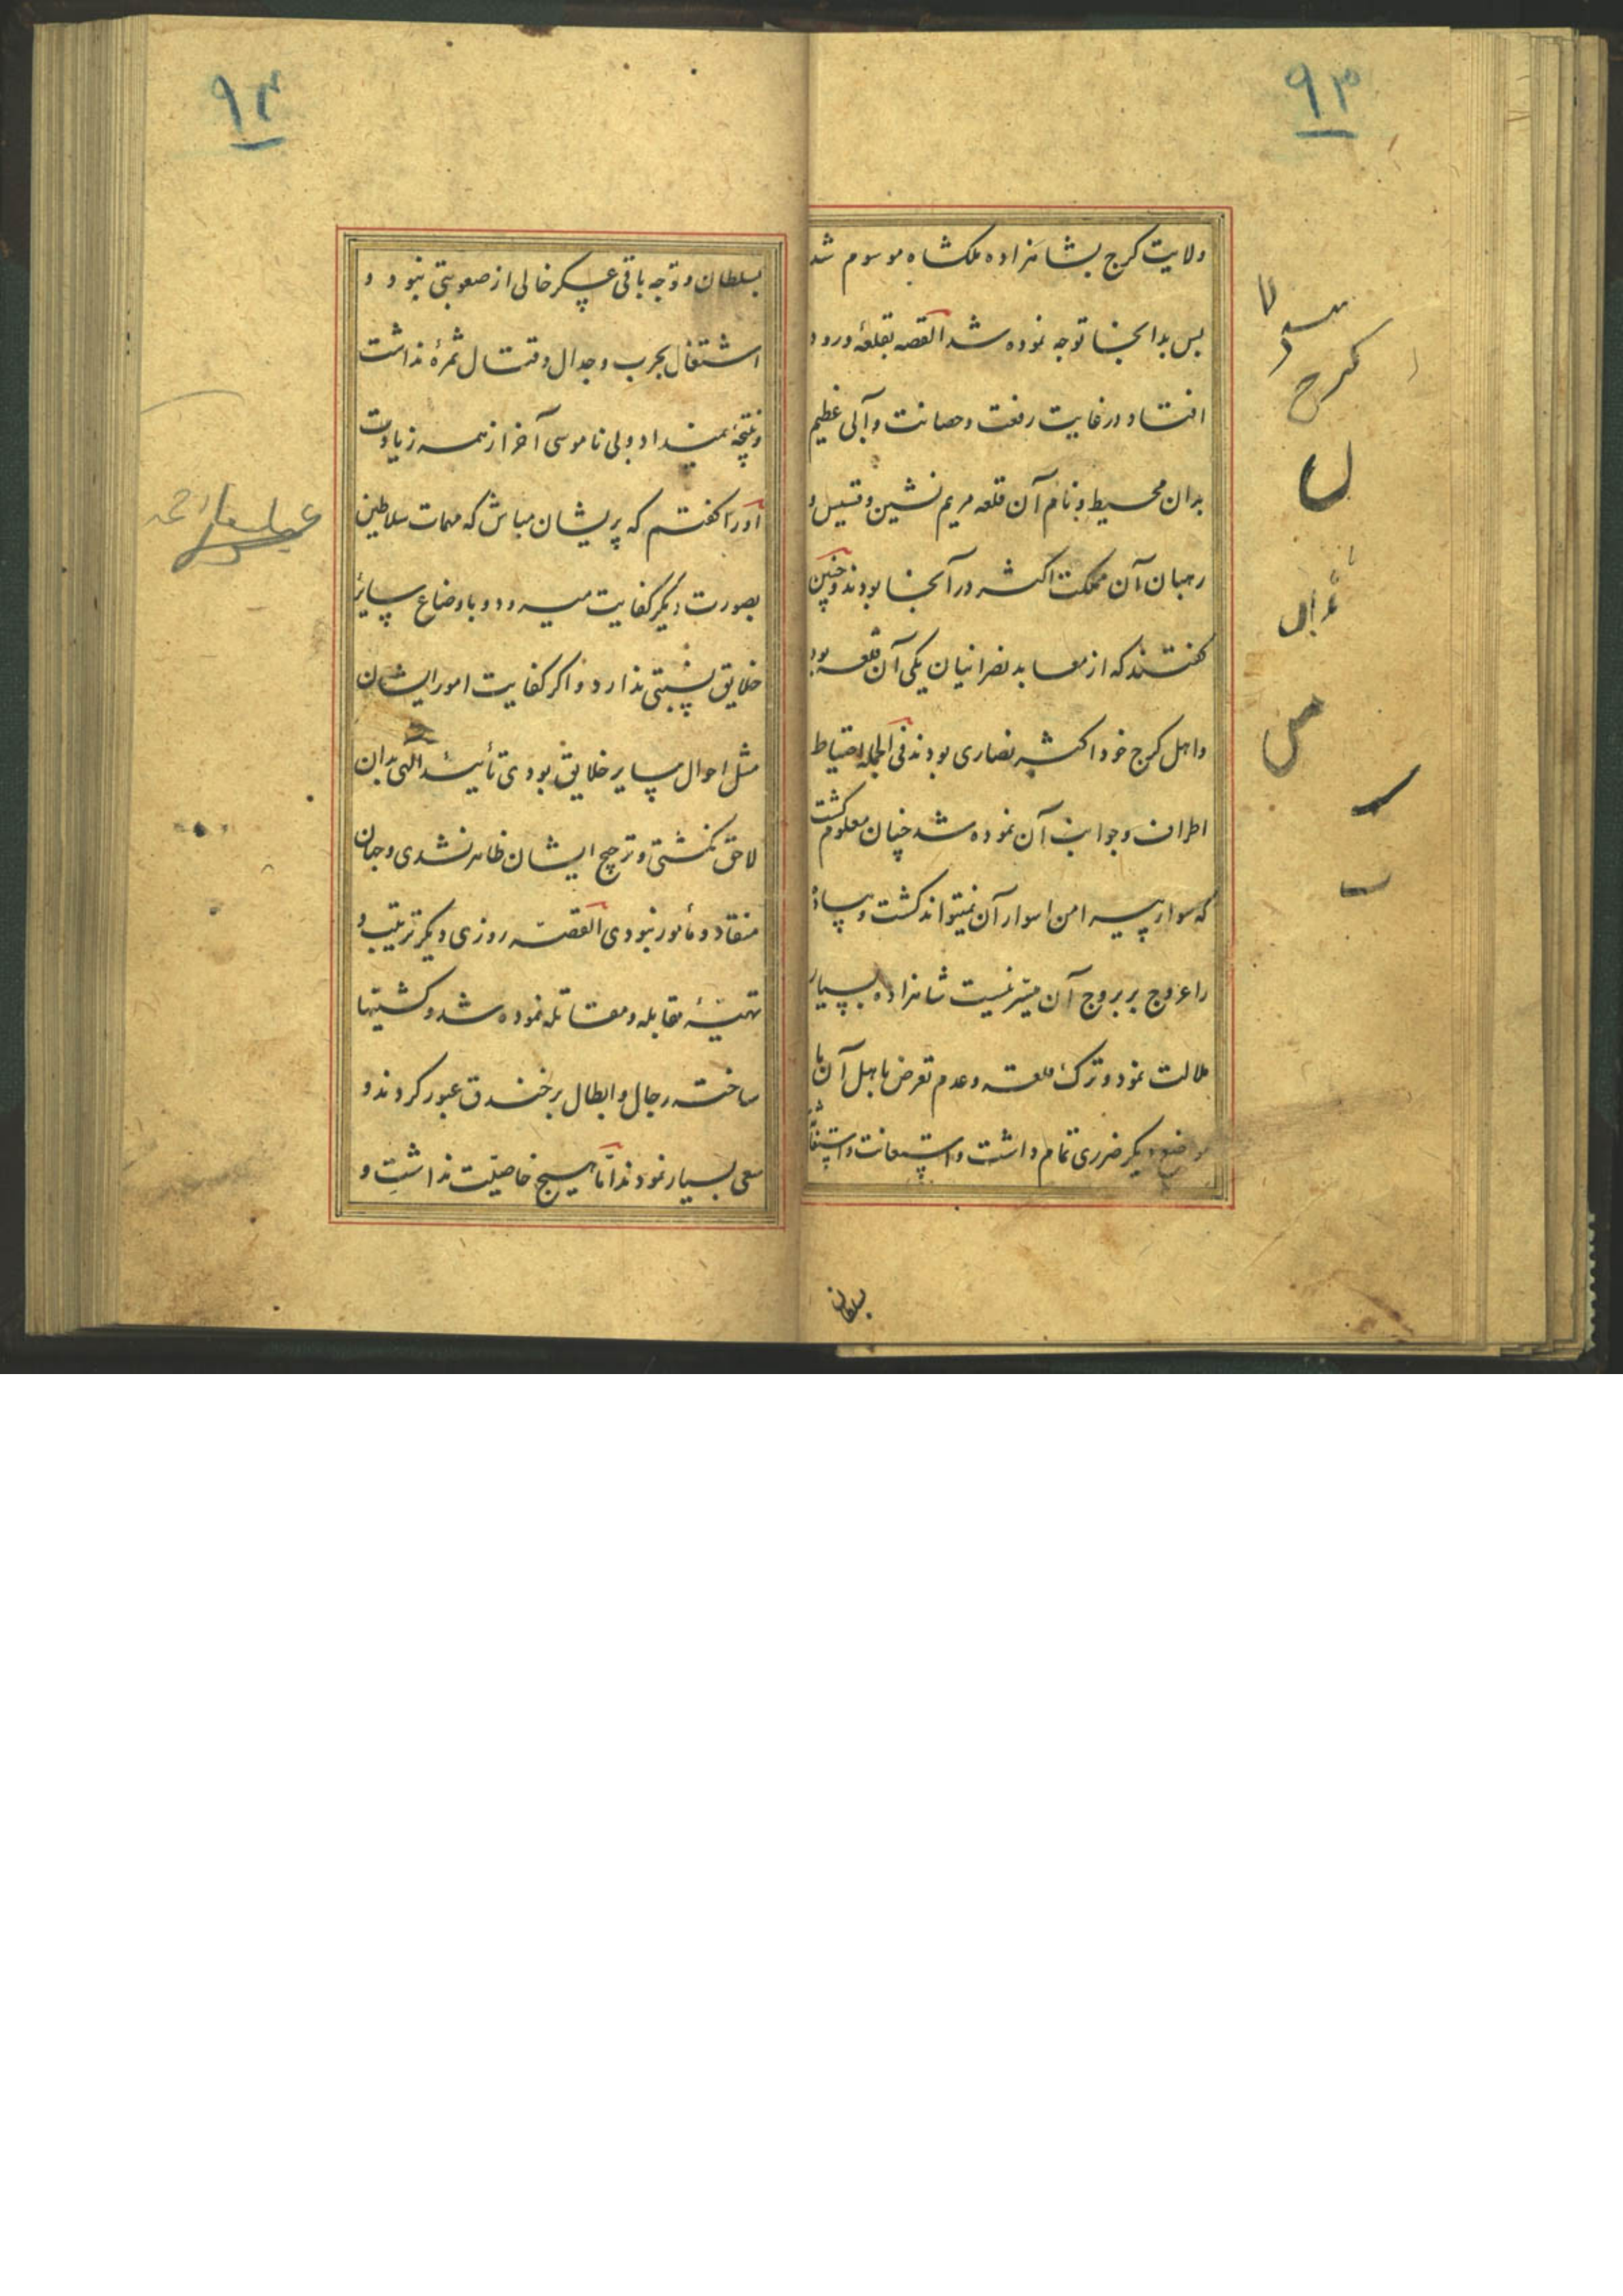 ۹۳
ولایت کرج بشاهزاده ملکشاه موسوم شد
پس بدانجا توجه نموده شد القصه بقلعهٔ ورود
افتاد در غایت رفعت و حصانت و آبی عظیم
بدان محیط و نام آن قلعه مریم نشین و قسیس و
رهبان آن مملکت اکثر در آنجا بودند و چنین
گفتند که از معابد نصرانیان یکی آن قلعه بود
و اهل کرج خود اکثر نصاری بودند فی الجمله احتیاط
اطراف و جوانب آن نموده شد چنان معلوم گشت
که سوار پیرامن اسوار آن نمیتواند گشت و پیاده
را عروج بر بروج آن میسر نیست شاهزاده بسیار
ملالت نمود و ترک قلعه و عدم تعرض باهل آن با
مواضع دیگر ضرری تمام داشت و استعانت و
بسلطان
کرج
ل
س
ب
۹۴
بسلطان و توجه باقی عسکر خالی از صعوبتی نبود و
اشتغال بحرب و جدال و قتال ثمرهٔ نداشت
و نتیجهٔ نمیداد و بی ناموسی آخر از همه زیادت
او را گفتم که پریشان مباش که مهمات سلاطین
بصورت دیگر کفایت میرود و باوضاع سایر
خلایق نسبتی ندارد و اگر کفایت امور ایشان
مثل احوال سایر خلایق بودی تأیید الهی بدان
لاحق نگشتی و ترجیح ایشان ظاهر نشدی و جهان
منقاد و مأمور نبودی القصه روزی دیگر ترتیب و
تهیهٔ مقابله و مقاتله نموده شد و کشتیها
ساخته رجال و ابطال بر خندق عبور کردند و
سعی بسیار نمودند اما هیچ خاصیت نداشت و